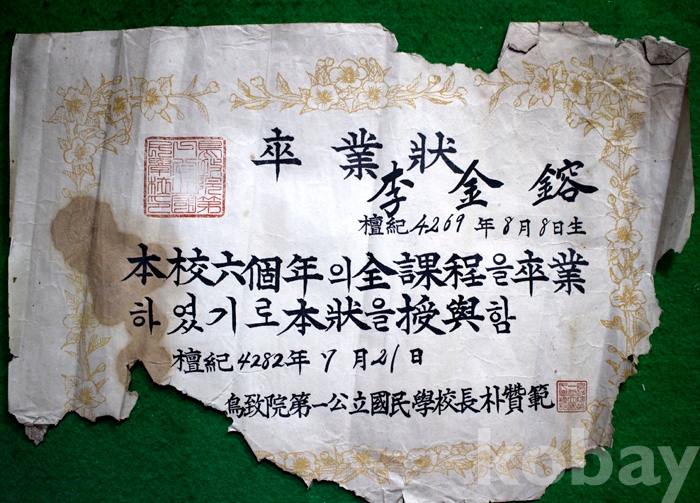 卒業狀
李金鎔
檀紀4269年8月8日生
本校六個年의全課程을卒業
하였기로本狀을授與함
檀紀4282年7月21日
鳥致院第一公立國民學校長朴贊範
kobay